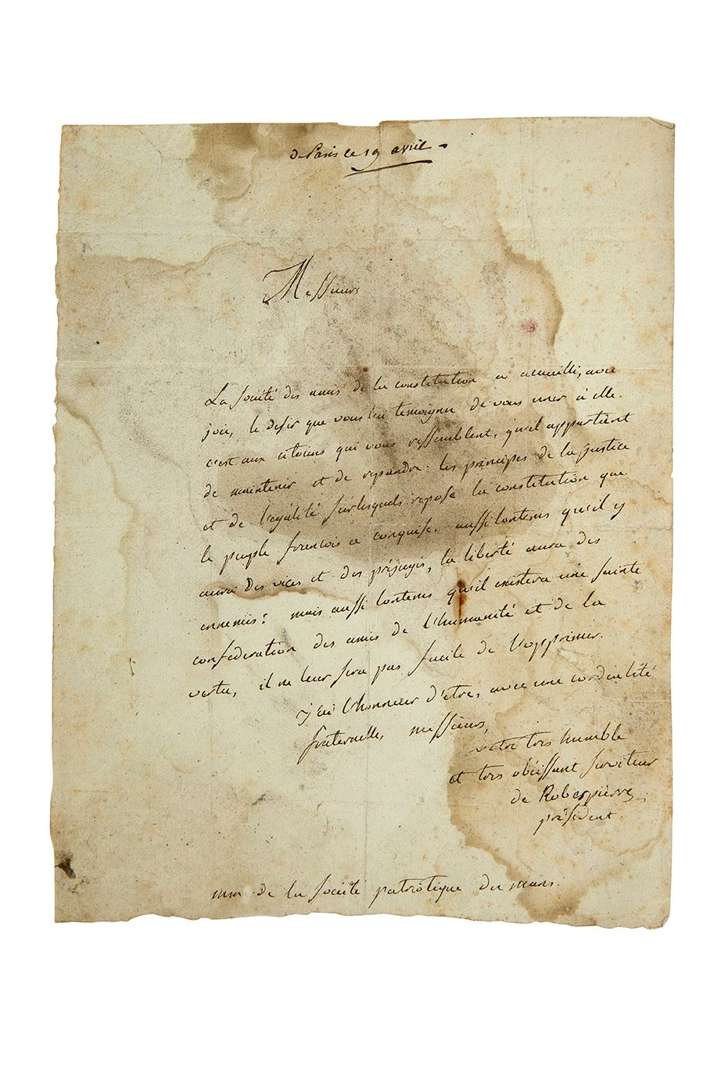 de Paris ce 19 avril
Messieurs
La société des amis de la constitution a accueilli, avec
joie, le desir que vous lui temoignez de vous unir à elle.
c'est aux citoiens qui vous ressemblent, qu'il appartient
de maintenir et de repandre les principes de la justice
et de l'egalité sur lesquels repose la constitution que
le peuple françois a conquise. aussi lontems qu'il y
aura des vices et des préjugés, la liberté aura des
ennemis; mais aussi lontems qu'il existera une sainte
confédération des amis de l'humanité et de la
vertu, il ne leur sera pas facile de l'opprimer.
j'ai l'honneur d'etre, avec une cordialité
fraternelle, messieurs,
votre tres humble
et tres obéissant serviteur
de Robespierre
président.
mm de la société patriotique du mans.